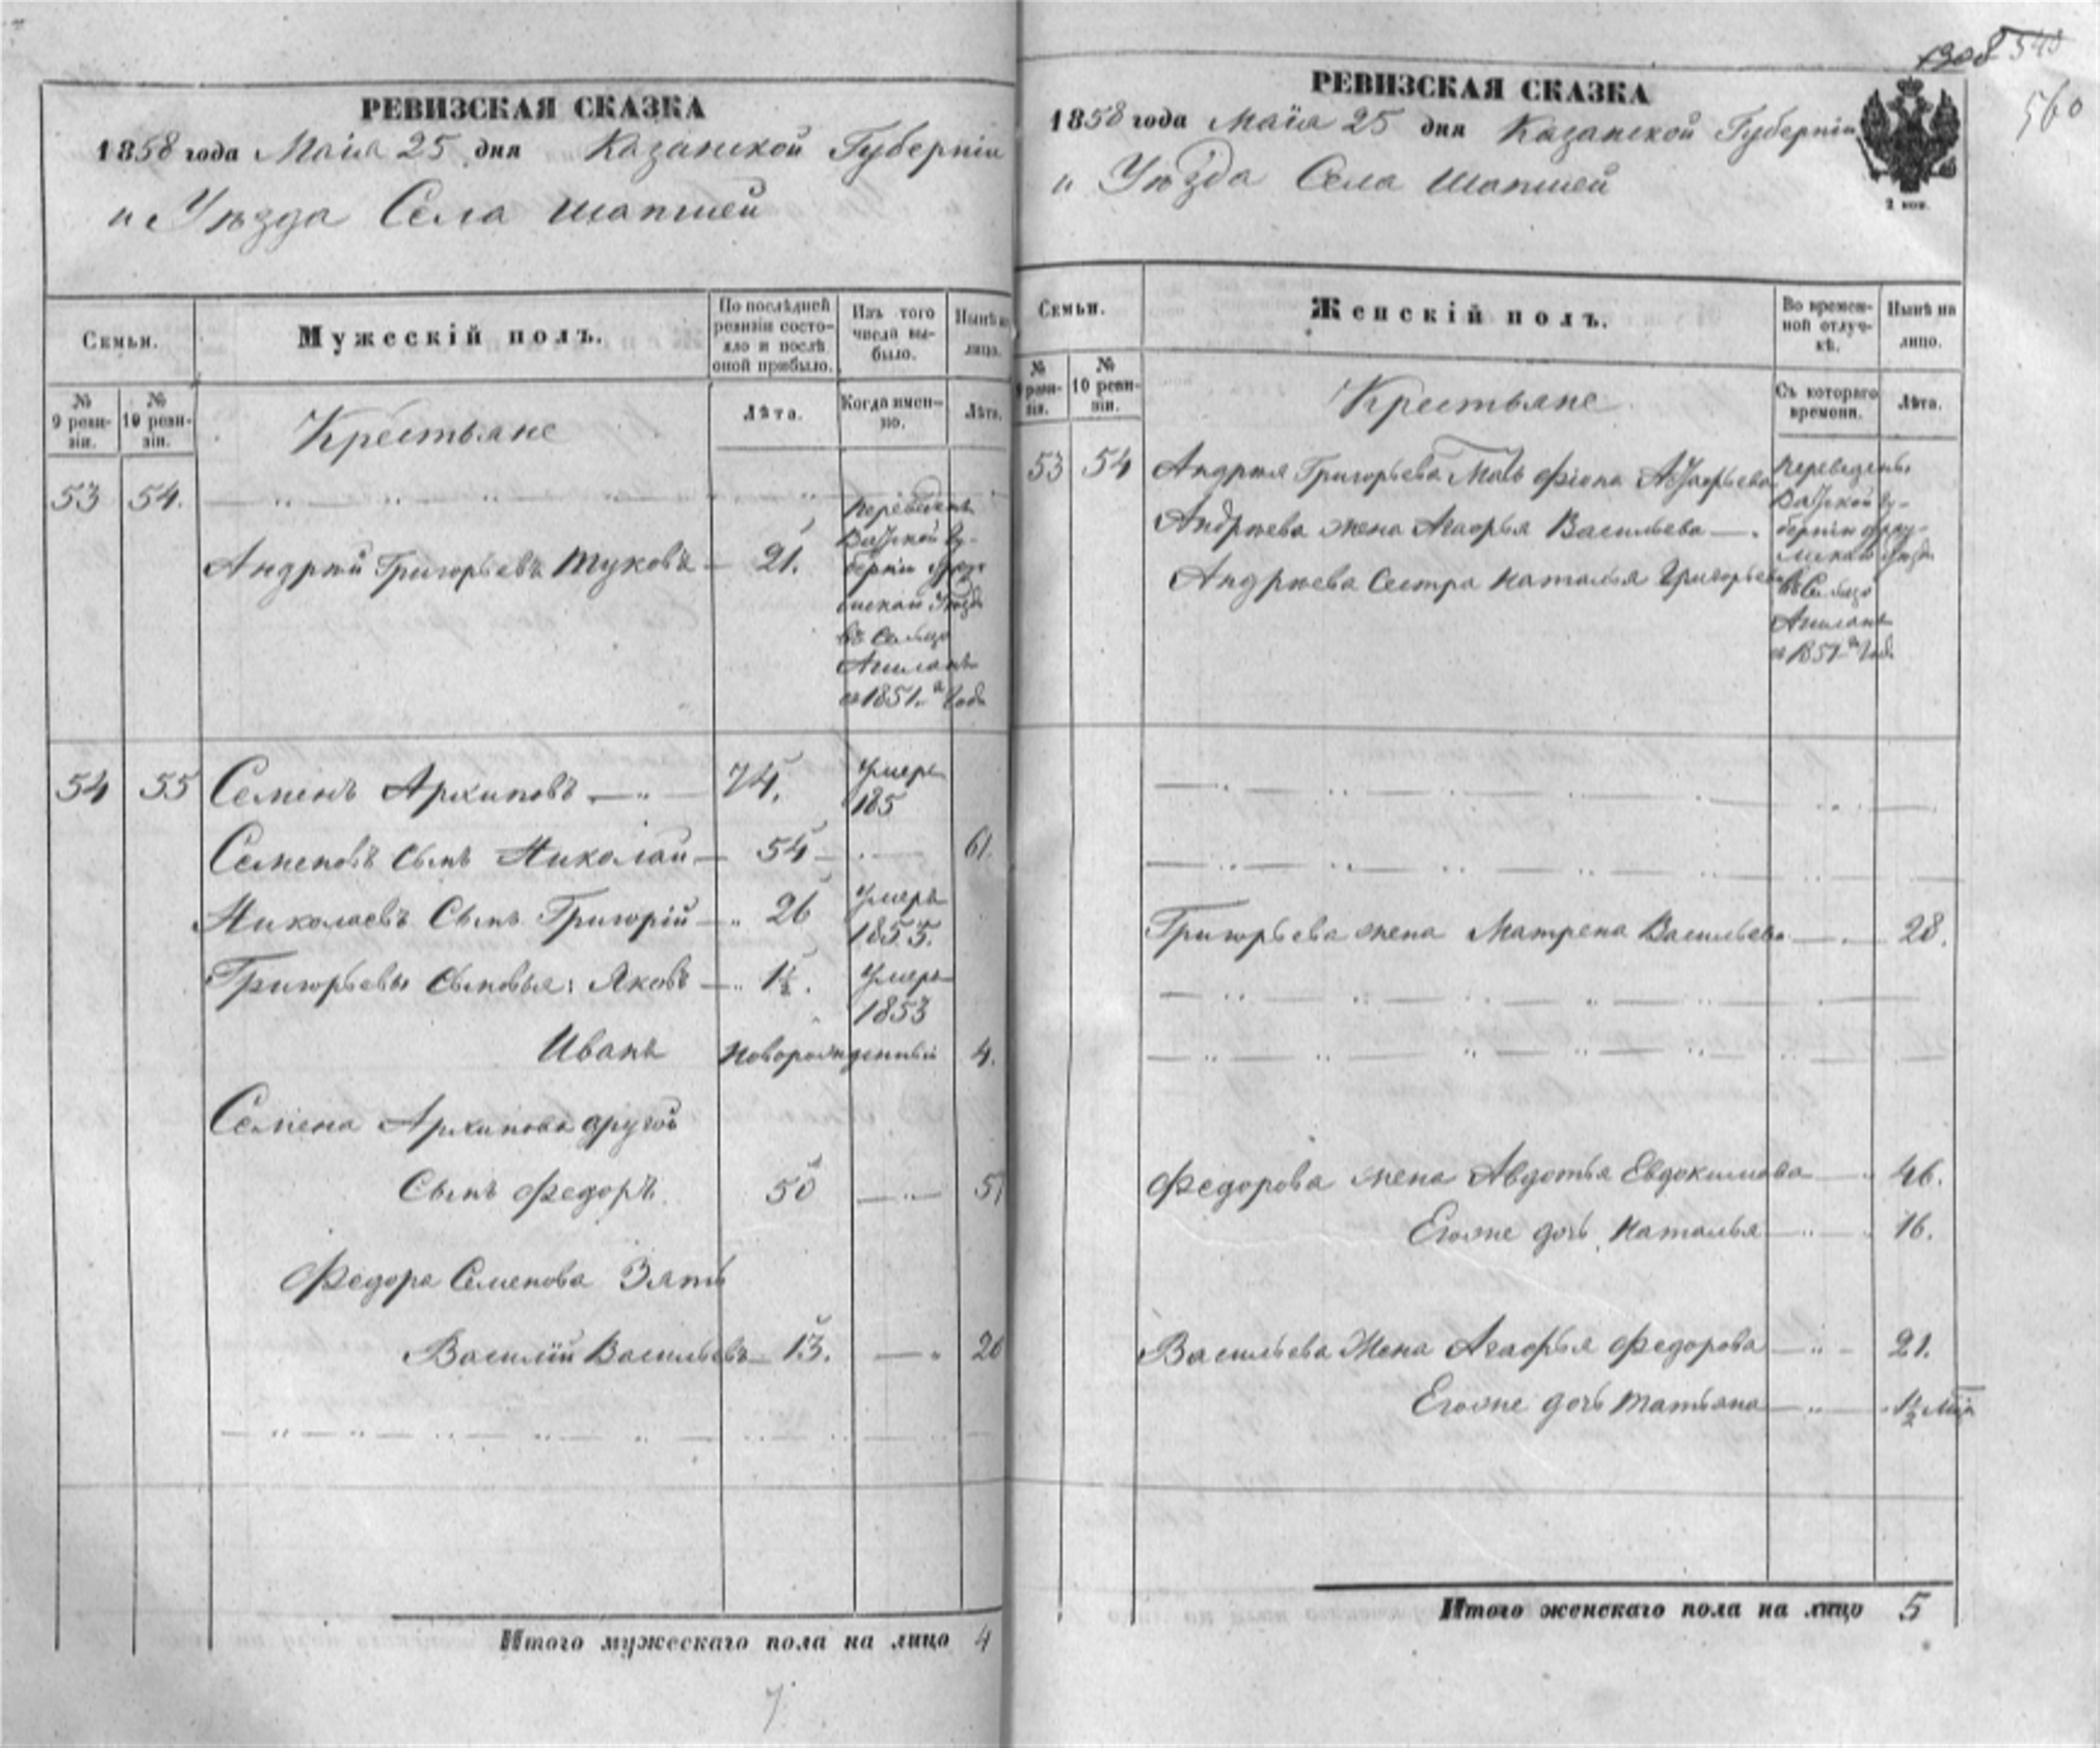 РЕВИЗСКАЯ СКАЗКА
1858 года Маія 25 дня Казанской Губерніи
и Уѣзда Села Шапшей
Семьи.
Мужескій полъ.
По послѣдней ревизіи состояло и послѣ оной прибыло.
Изъ того числа выбыло.
Нынѣ на лицо.
№ 9 ревизіи.
№ 10 ревизіи.
Крестьяне
Лѣта.
Когда именно.
Лѣта.
53 54.
Андрей Григорьевъ Жуковъ 21.
Переведенъ
Вятской Гу-
берніи
Уѣзда
въ Сельцо
съ 1851.го Года
54 55 Семенъ Архиповъ 74. Умеръ
185
Семеновъ сынъ Николай 54 61.
Николаевъ Сынъ Григорій 26 Умеръ
1855.
Григорьевы сыновья: Яковъ 1½. Умеръ
1853
Иванъ Новорожденный 4.
Семена Архипова другой
Сынъ Федоръ 50 57
Федора Семенова Зять
Василій Васильевъ 13. 20
Итого мужескаго пола на лицо 4
7
1308 540
560
РЕВИЗСКАЯ СКАЗКА
1858 года Маія 25 дня Казанской Губерніи
и Уѣзда Села Шапшей
Семьи.
Женскій полъ.
Во временной отлучкѣ.
Нынѣ на лицо.
№ 9 ревизіи.
№ 10 ревизіи.
Крестьяне
Съ котораго времени.
Лѣта.
53 54 Андрея Григорьева Мать Фіона
Андреева жена Агафья Васильева
Андреева Сестра Наталья Григорьева
Переведены
Вятской Гу-
берніи
Уѣзда
въ Сельцо
съ 1851го Года
Григорьева жена Матрена Васильева 28.
Федорова жена Авдотья Евдокимова 46.
Егоже дочь Наталья 16.
Васильева Жена Агафья Федорова 21.
Егоже дочь Татьяна
Итого женскаго пола на лицо 5